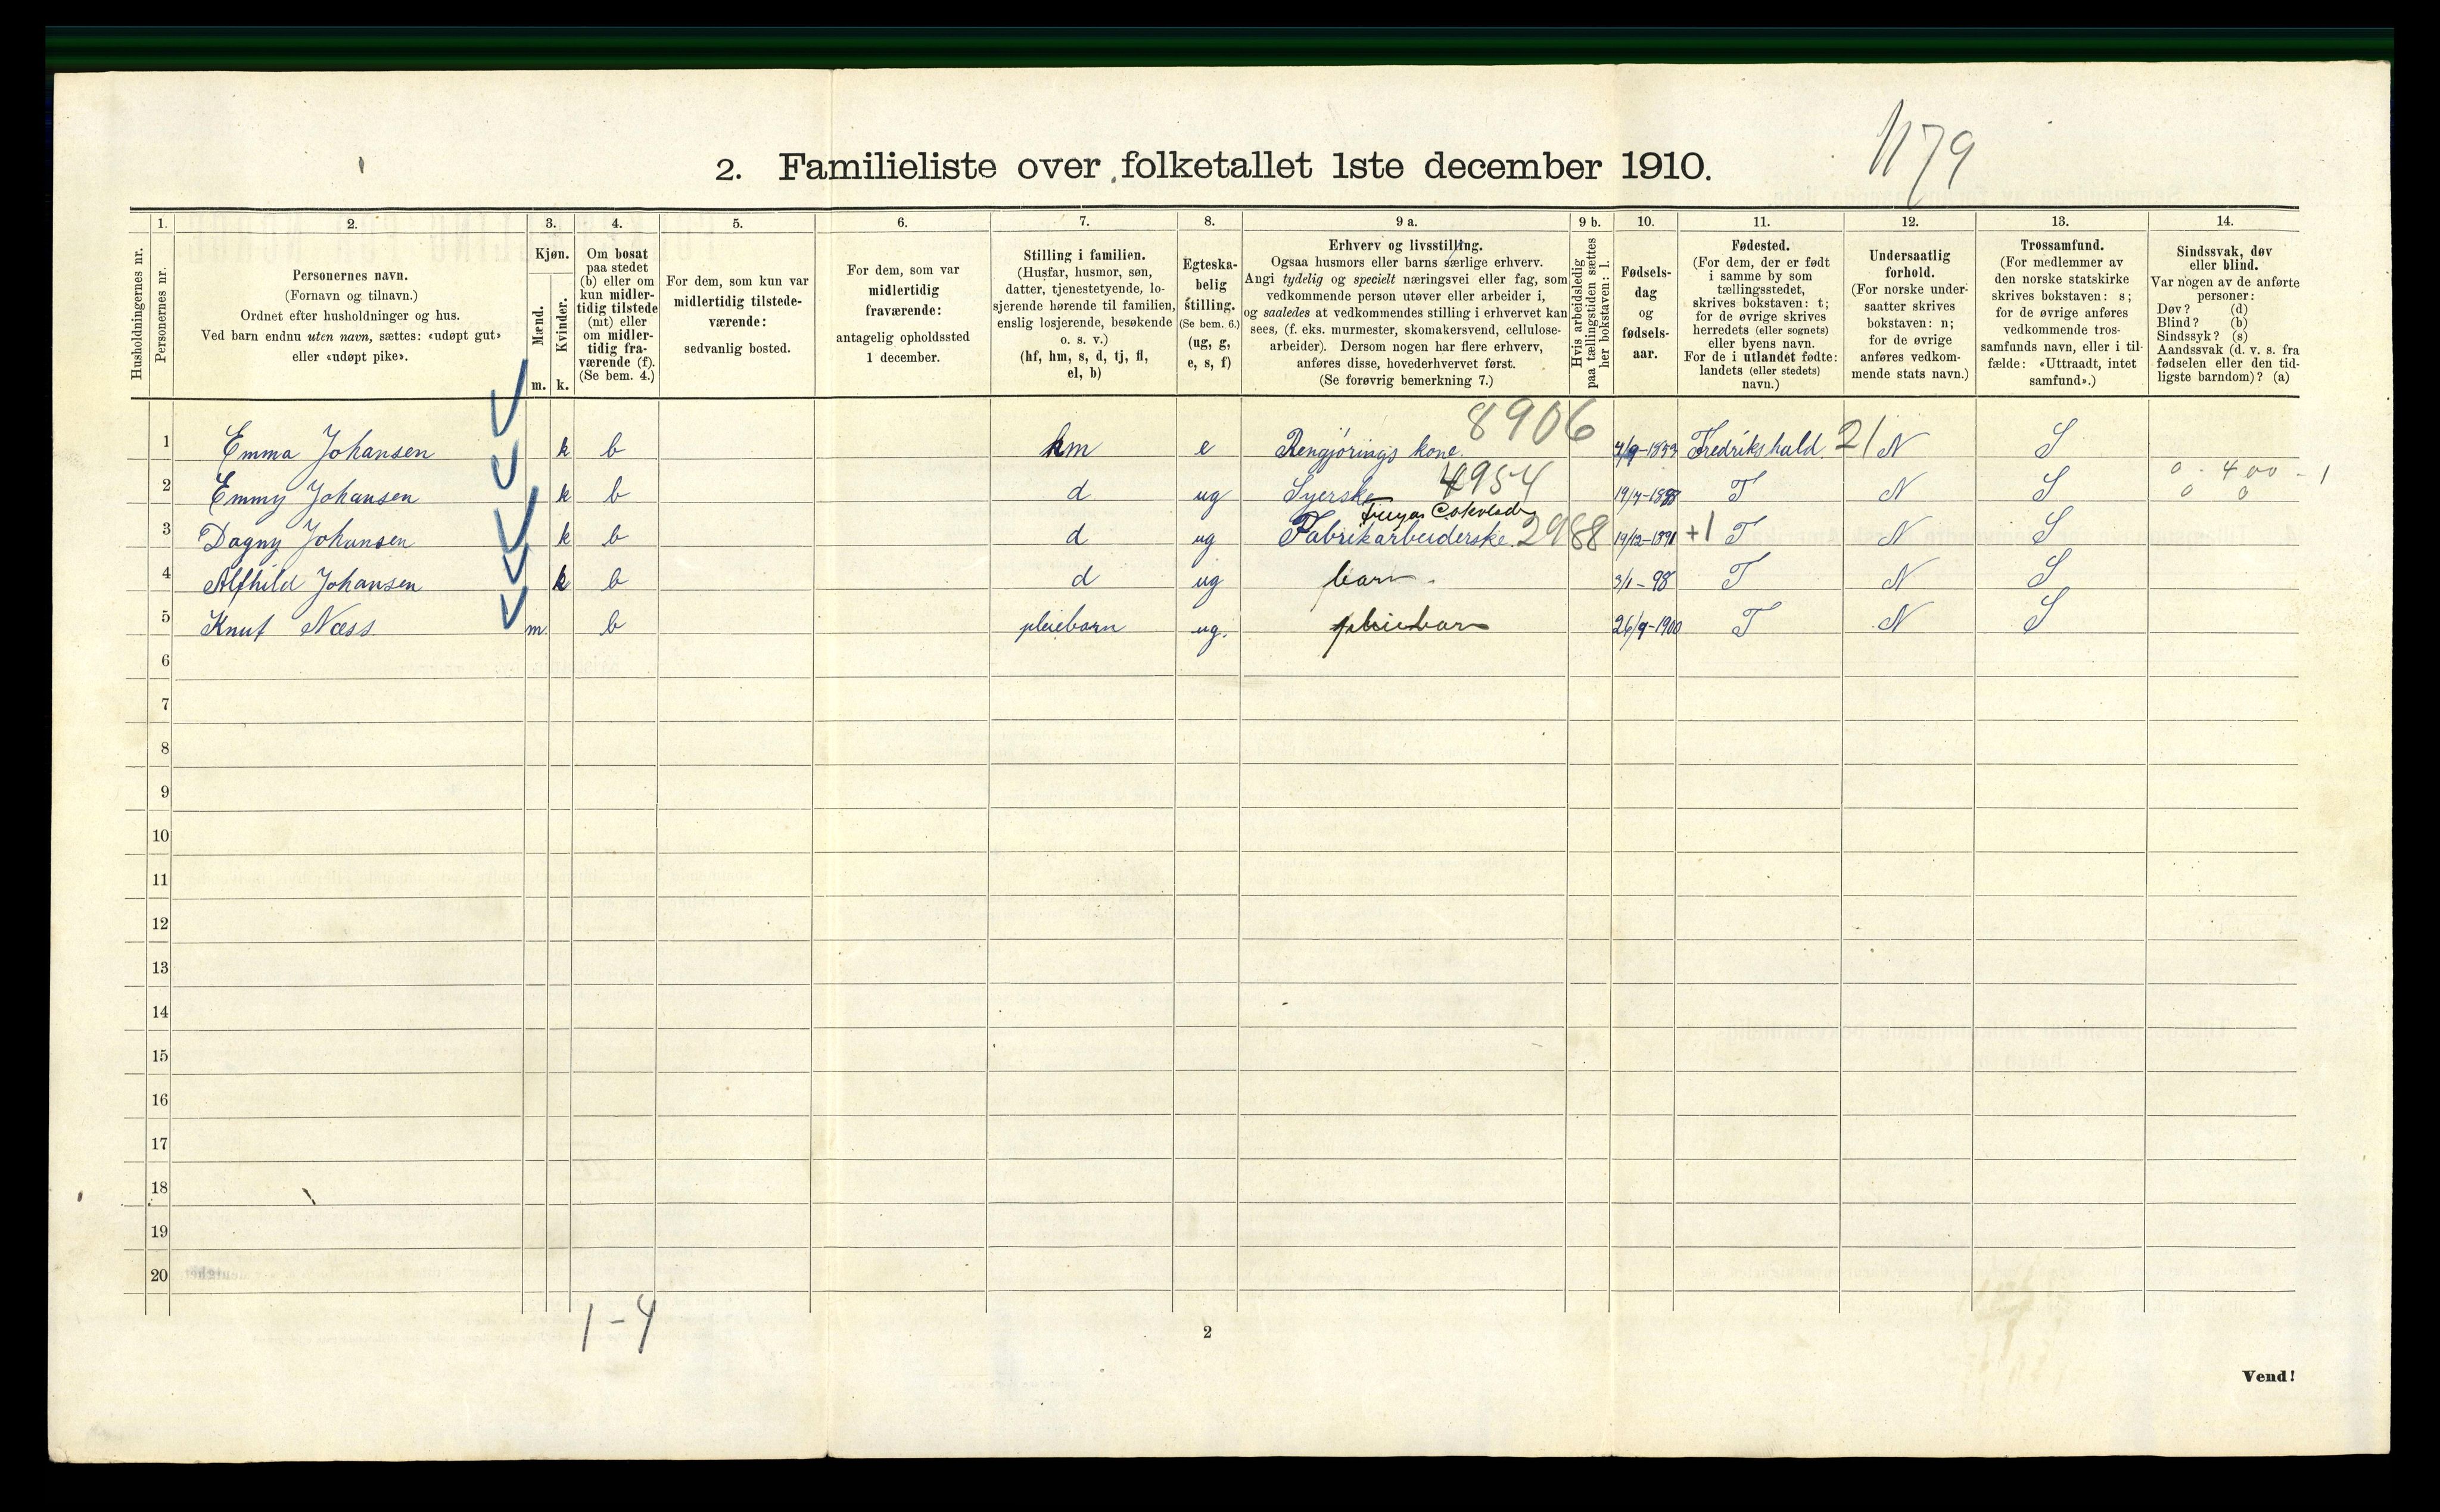 1179
2. Familieliste over folketallet 1ste december 1910.
1. 2. 3. 4. 5. 6. 7. 8. 9 a. 9 b. 10. 11. 12. 13. 14.
Husholdningernes nr.
Personernes nr.
Personernes navn.
(Fornavn og tilnavn.)
Ordnet efter husholdninger og hus.
Ved barn endnu uten navn, sættes: «udøpt gut»
eller «udøpt pike».
Kjøn.
Mænd.
Kvinder.
m. k.
Om bosat
paa stedet
(b) eller om
kun midler-
tidig tilstede
(mt) eller
om midler-
tidig fra-
værende (f).
(Se bem. 4.)
For dem, som kun var
midlertidig tilstede-
værende:
sedvanlig bosted.
For dem, som var
midlertidig
fraværende:
antagelig opholdssted
1 december.
Stilling i familien.
(Husfar, husmor, søn,
datter, tjenestetyende, lo-
sjerende hørende til familien,
enslig losjerende, besøkende
o. s. v.)
(hf, hm, s, d, tj, fl,
el, b)
Egteska-
belig
stilling.
(Se bem. 6.)
(ug, g,
e, s, f)
Erhverv og livsstilling.
Ogsaa husmors eller barns særlige erhverv.
Angi tydelig og specielt næringsvei eller fag, som
vedkommende person utøver eller arbeider i,
og saaledes at vedkommendes stilling i erhvervet kan
sees, (f. eks. murmester, skomakersvend, cellulose-
arbeider). Dersom nogen har flere erhverv,
anføres disse, hovederhvervet først.
(Se forøvrig bemerkning 7.)
Hvis arbeidsledig
paa tællingstiden sættes
her bokstaven: l.
Fødsels-
dag
og
fødsels-
aar.
Fødested.
(For dem, der er født
i samme by som
tællingsstedet,
skrives bokstaven: t;
for de øvrige skrives
herredets (eller sognets)
eller byens navn.
For de i utlandet fødte:
landets (eller stedets)
navn.)
Undersaatlig
forhold.
(For norske under-
saatter skrives
bokstaven: n;
for de øvrige
anføres vedkom-
mende stats navn.)
Trossamfund.
(For medlemmer av
den norske statskirke
skrives bokstaven: s;
for de øvrige anføres
vedkommende tros-
samfunds navn, eller i til-
fælde: «Uttraadt, intet
samfund».)
Sindssvak, døv
eller blind.
Var nogen av de anførte
personer:
Døv? (d)
Blind? (b)
Sindssyk? (s)
Aandssvak (d. v. s. fra
fødselen eller den tid-
ligste barndom)? (a)
8906
1 Emma Johansen k b hm e Rengjørings kone. Fredrikshald. 21 N S
4954 0 - 400 - 1
2 Emmy Johansen k b d ug Syerske T N S 0 0
Freyas
3 Dagny Johansen k b d ug Fabrikarbeiderske. 2988 19/12-1891 +1 T N S
4 Alfhild Johansen k b d ug barn. 3/1-98 T N S
5 Knut Næss m. b pleiebarn ug. pleiebarn 26/9-1900 T N S
6
7
8
9
10
11
12
13
14
15
16
17
18
19
20
1-4
2
Vend!